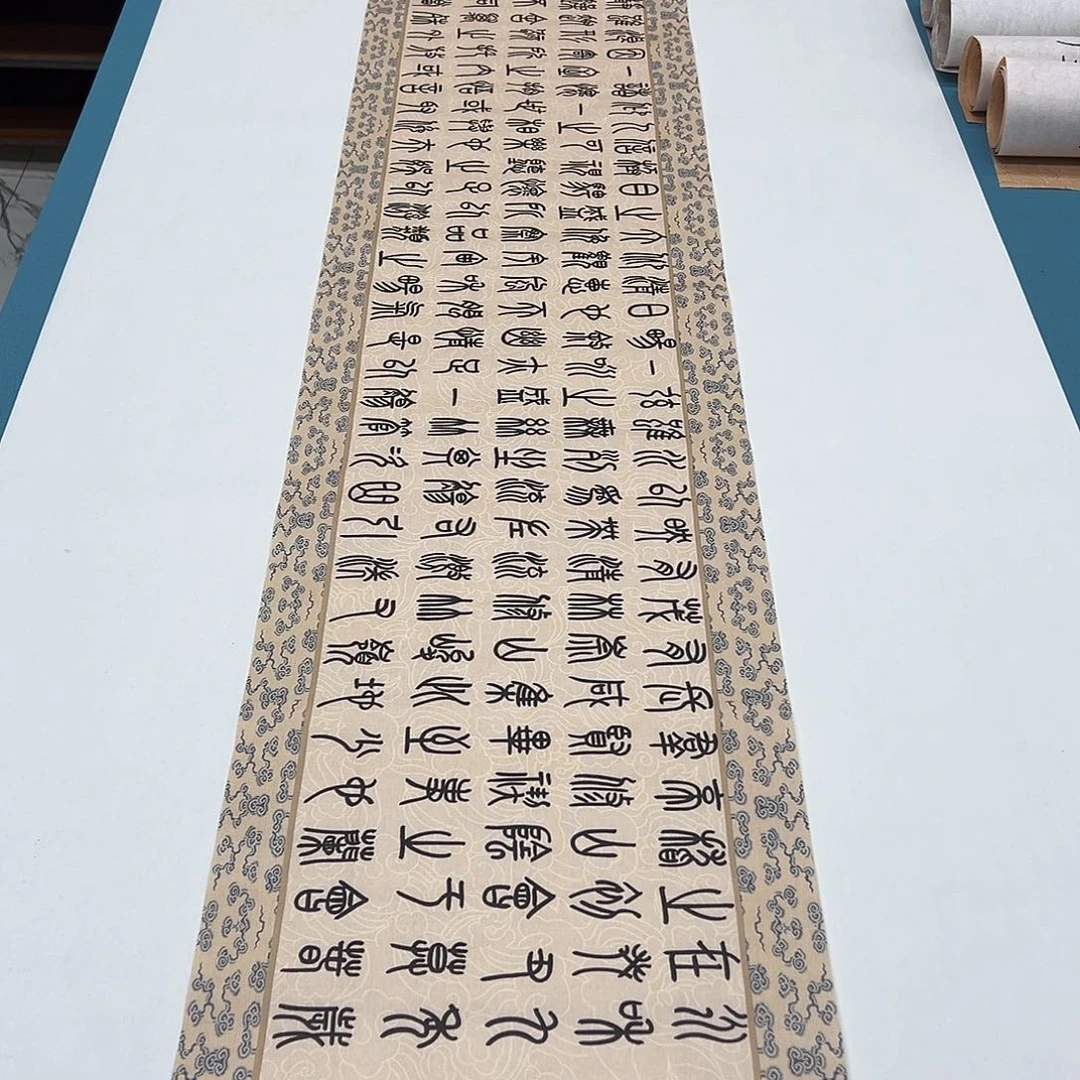 永和九年歲
在癸丑暮春
之初會于會
稽山陰之蘭
亭脩禊事也
群賢畢至少
長咸集此地
有崇山峻領
茂林脩竹又
有清流激湍
映帶左右引
以為流觴曲
水列坐其次
雖無絲竹管
弦之盛一觴
一詠亦足以
暢敘幽情是
日也天朗氣
清惠風和暢
仰觀宇宙之
大俯察品類
之盛所以遊
目騁懷足以
極視聽之娛
信可樂也夫
人之相與俯
仰一世或取
諸懷抱悟言
一室之內或
因寄所託放
浪形骸之外